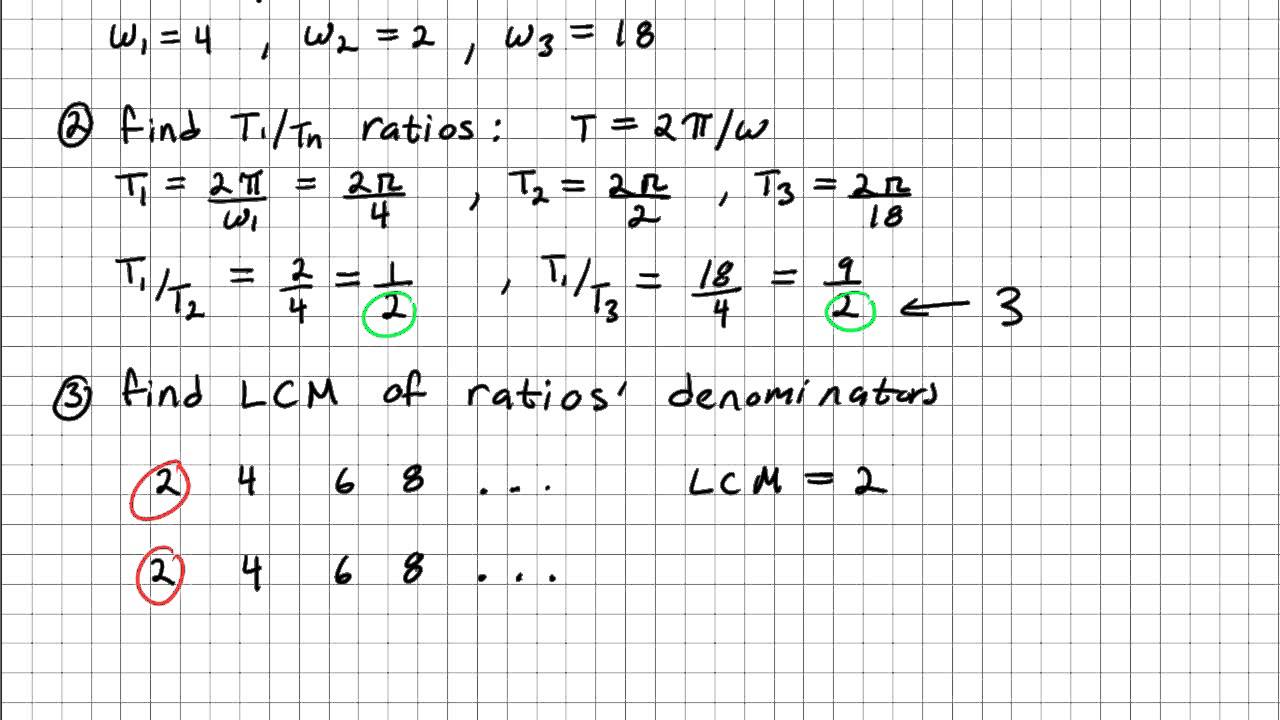 ω₁ = 4 , ω₂ = 2 , ω₃ = 18
② find T₁/Tn ratios: T = 2π/ω
T₁ = 2π/ω₁ = 2π/4 , T₂ = 2π/2 , T₃ = 2π/18
T₁/T₂ = 2/4 = 1/2 , T₁/T₃ = 18/4 = 9/2 ← 3
③ find LCM of ratios' denominators
2 4 6 8 ... LCM = 2
2 4 6 8 ...